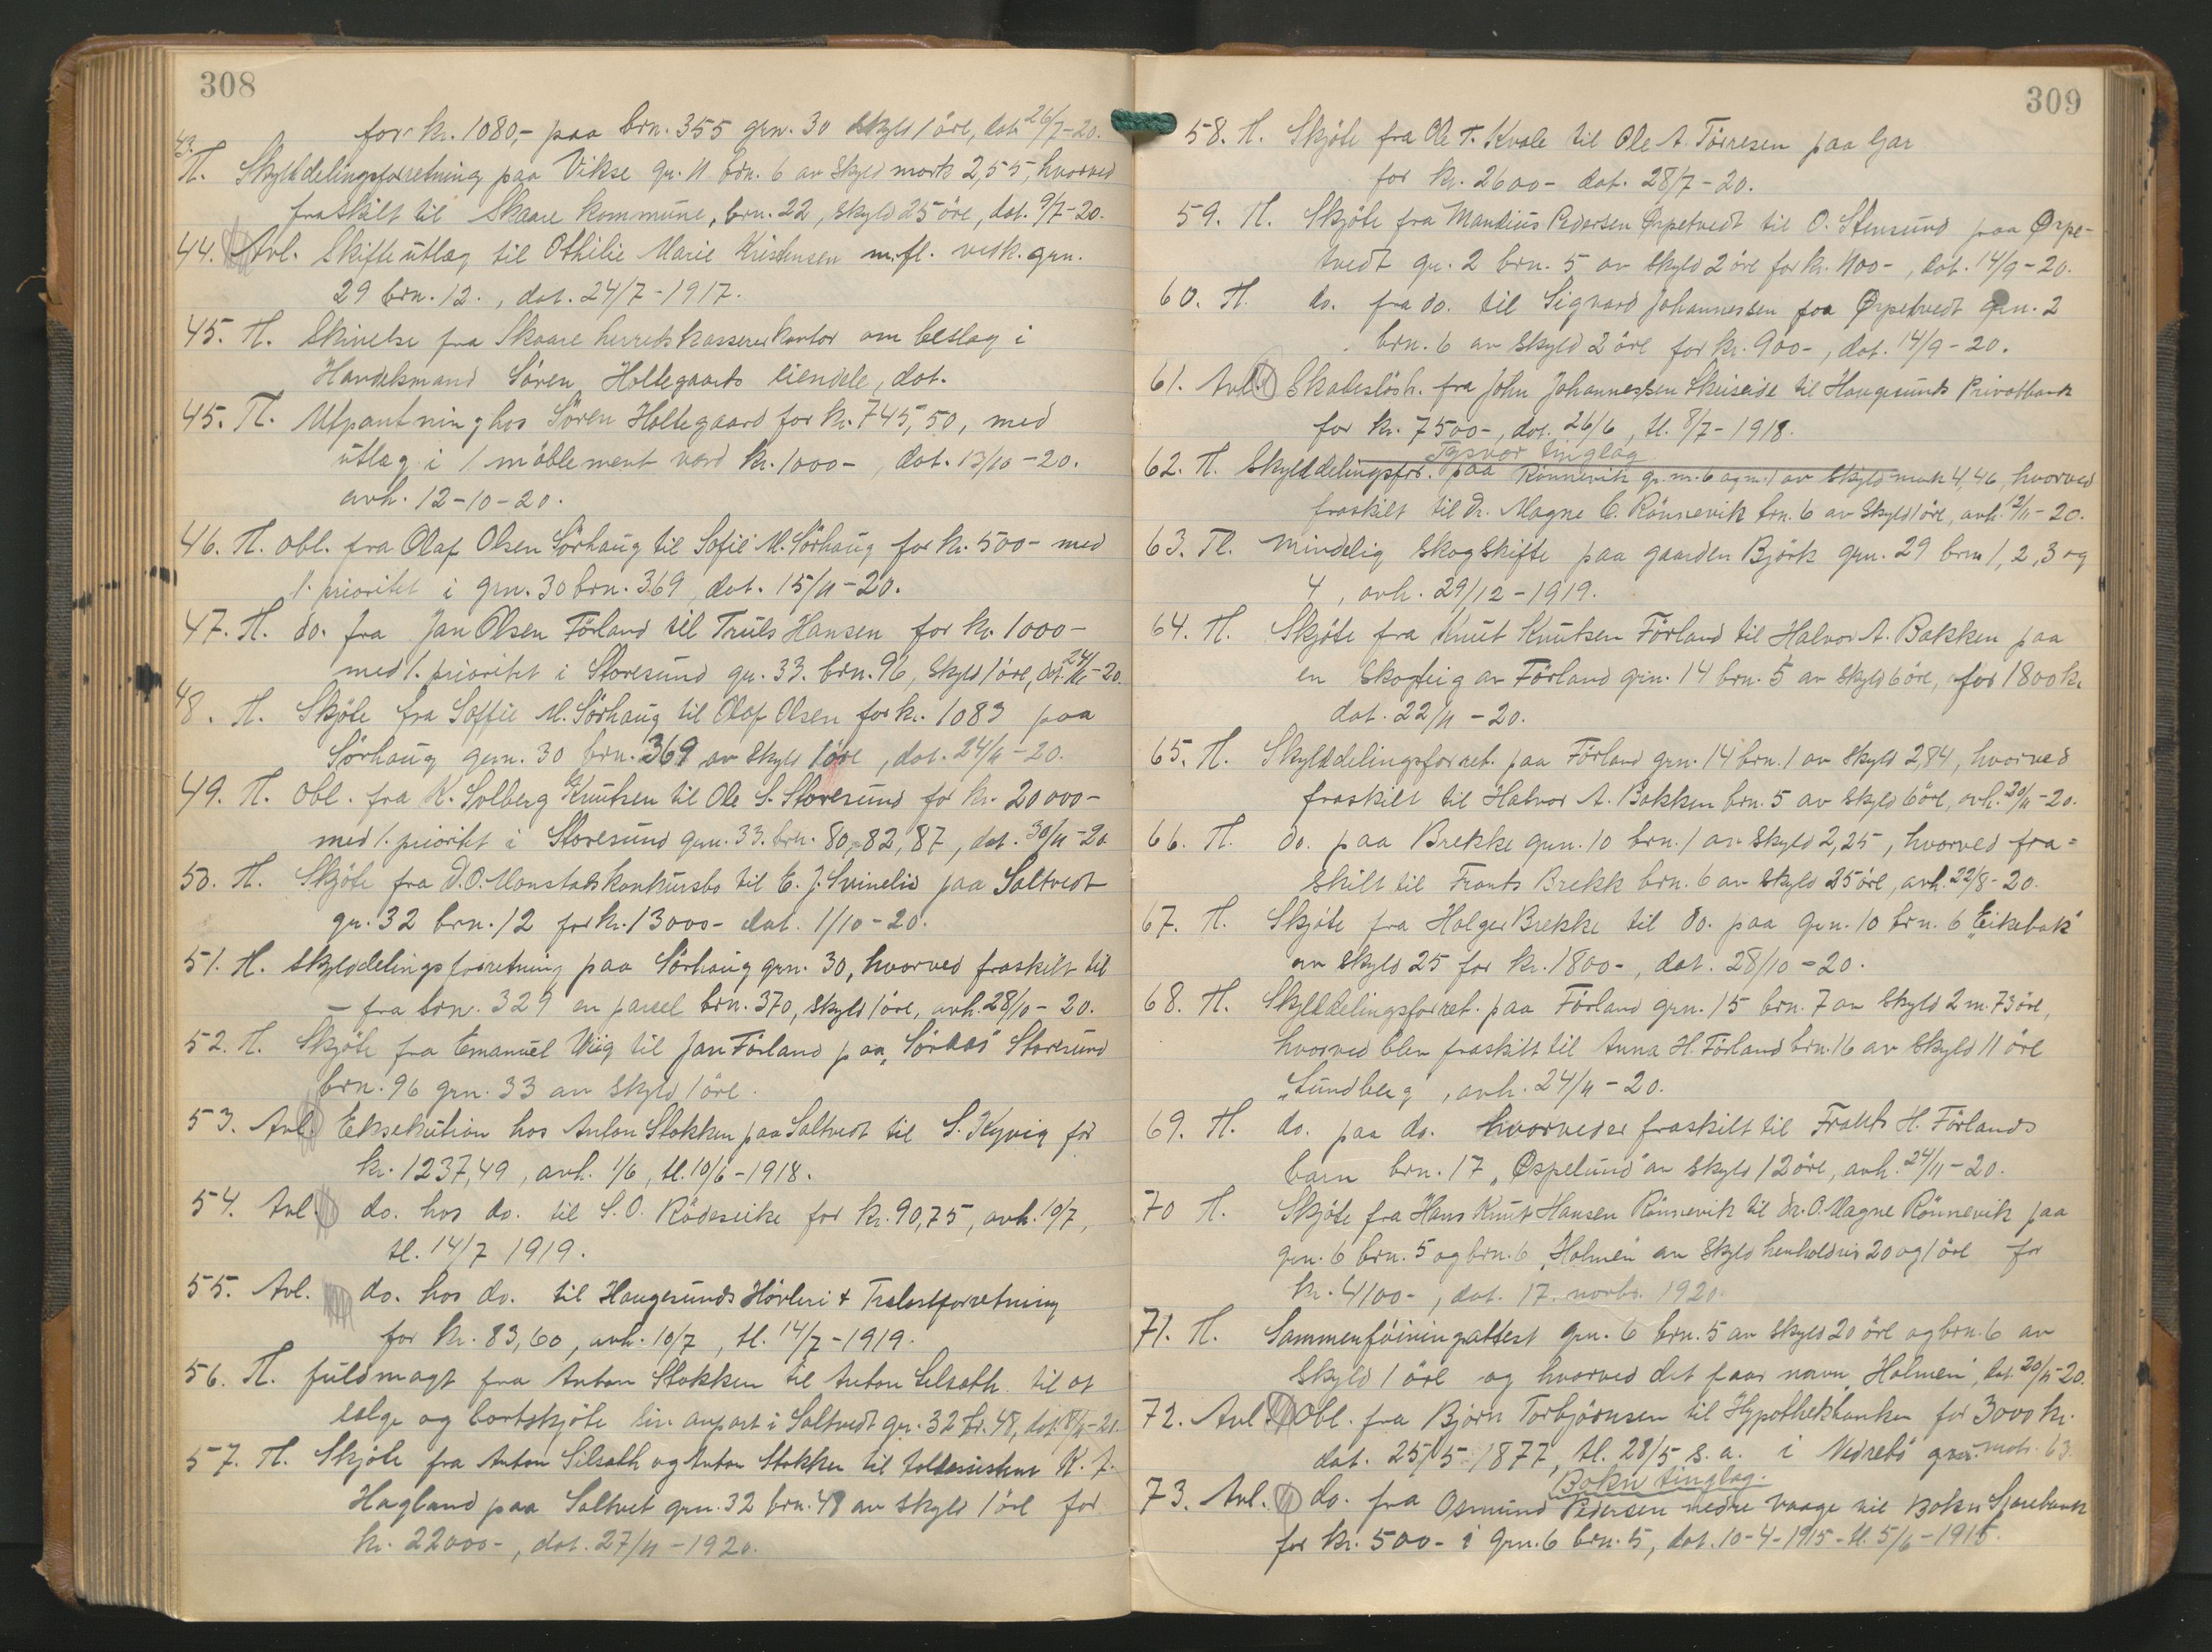 308
for kr. 1080,- paa brn. 355 grn. 30 skyld 1 öre, dat. 26/7-20.
43. Tl. Skylddelingsforretning paa Vikse gr. 11 brn. 6 av skyld mark 2,55, hvorved
fraskilt til Skaare kommune, brn. 22, skyld 25 öre, dat. 9/7-20.
44. Avl. Skifteutlæg til Othilie Marie Kristensen m.fl. vedk. grn.
29 brn. 12., dat. 24/7-1917.
45. Tl. Skrivelse fra Skaare herredskassererkontor om beslag i
Handelsmand Sören Holtegaards eiendele, dat.
45. Tl. Utpantning hos Sören Holtegaard for kr. 745,50, med
utlæg i 1 möblement værd kr. 1000-, dat. 13/10-20.
avh. 12-10-20.
46. Tl. obl. fra Olaf Olsen Sörhaug til Sofie M. Sörhaug for kr. 500- med
1. prioritet i grn. 30 brn. 369, dat. 15/11-20.
47. Tl. do. fra Jan Olsen Förland til Truls Hansen for kr. 1000-
med 1. prioritet i Storesund gr. 33. brn. 96, skyld 1 öre, dat. 24/11-20.
48. Tl. Skjöte fra Soffie M. Sörhaug til Olaf Olsen for kr. 1083 paa
Sörhaug grn. 30 brn. 369 av skyld 1 öre, dat. 24/11-20.
49. Tl. obl. fra K. Solberg Knutsen til Ole S. Storesund for kr. 20000-
med 1. prioritet i Storesund grn. 33. brn. 80, 82, 87, dat. 30/11-20
50. Tl. Skjöte fra D.O. Monstadskonkursbo til E. J. Svinelid paa Saltvedt
gr. 32 brn. 12 for kr. 13000- dat. 1/10-20.
51. Tl. skylddelingsforretning paa Sörhaug grn. 30, hvorved fraskilt til
- fra brn. 329 en parcel brn. 370, skyld 1 öre, avh. 28/10-20.
52. Tl. Skjöte fra Emanuel Viig til Jan Förland paa „Söraas" Storesund
brn. 96 grn. 33 av skyld 1 öre.
53. Avl. Eksekution hos Anton Stokken paa Saltvedt til S. Kyvig for
kr. 1237,49, avh. 1/6, tl. 10/6-1918.
54. Avl. do. hos do. til S.O. Rödseike for kr. 90,75, avh. 10/7,
tl. 14/7 1919.
55. Avl. do. hos do. til Haugesunds Hövleri & Trælastforretning
for kr. 83,60, avh. 10/7, tl. 14/7-1919.
56. Tl. fuldmagt fra Anton Stokken til Anton Silseth til at
sælge og bortskjöte sin anpart i Saltvedt gr. 32 br. 48,
57. Tl. Skjöte fra Anton Silseth og Anton Stokken til toldassistent K. J.
Hagland paa Saltvet grn. 32 brn. 48 av skyld 1 öre for
kr. 22000-, dat. 27/11-1920.
309
58. Tl. Skjöte fra Ole T. Kvale til Ole A. Törresen paa Gar
for kr. 2600- dat. 28/7-20.
59. Tl. Skjöte fra Mandius Pedersen Ørpetvedt til O. Stensund paa Ørpe-
tvedt gr. 2 brn. 5 av skyld 2 öre for kr. 1100-, dat. 14/9-20.
60. Tl. do. fra do. til Sigvard Johannessen paa Ørpetvedt grn. 2
brn. 6 av skyld 2 öre for kr. 900-, dat. 14/9-20.
61. Avl. Skadeslösh. fra John Johannessen Skeiseide til Haugesunds Privatbank
for kr. 7500-, dat. 26/6, tl. 8/7-1918.
Tysvær tinglag
62. Tl. Skylddelingsfor. paa Rönnevik gr. nr. 6 av skyld mark 4,46, hvorved
fraskilt til Dr. Magne C. Rönnevik brn. 6 av skyld 1 öre, avh. 12/11-20.
63. Tl. mindelig skogskifte paa gaarden Björk grn. 29 brn 1, 2, 3 og
4, avh. 29/12-1919.
64. Tl. Skjöte fra Knut Knutsen Förland til Halvor A. Bakken paa
en skogteig av Förland grn. 14 brn. 5 av skyld 6 öre, for 1800 kr.
dat. 22/11-20.
65. Tl. Skylddelingsforret. paa Förland grn. 14 brn. 1 av skyld 2,84, hvorved
fraskilt til Halvor A. Bakken brn. 5 av skyld 6 öre, avh. 20/11-20.
66. Tl. do. paa Brekke grn. 10 brn. 1 av skyld 2,25, hvorved fra=
skilt til Frants Brekk brn. 6 av skyld 25 öre, avh. 22/8-20.
67. Tl. Skjöte fra Holger Brekke til do. paa grn. 10 brn. 6 „Eikebak"
av skyld 25 for kr. 1800-, dat. 28/10-20.
68. Tl. Skylddelingsforret. paa Förland grn. 15 brn. 7 av skyld 2 m. 73 öre,
hvorved blev fraskilt til Anna H. Förland brn. 16 av skyld 11 öre
„Lundberg", avh. 24/11-20.
69. Tl. do. paa do. hvorved er fraskilt til Frants H. Förlands
barn brn. 17 „Ospelund" av skyld 12 öre, avh. 24/11-20.
70 Tl. Skjöte fra Hans Knut Hansen Rönnevik til dr. O. Magne Rönnevik paa
grn. 6 brn. 5 og brn. 6 „Holmen" av skyld henholdsvis 20 og 1 öre for
kr. 4100-, dat. 17. novbr. 1920.
71. Tl. Sammenföiningsattest grn. 6 brn. 5 av skyld 20 öre og brn. 6 av
skyld 1 öre og hvorved det faar navn „Holmen", dat. 20/11-20.
72. Avl. Obl. fra Björn Torbjörnsen til Hypothekbanken for 3000 kr.
dat. 25/5 1877, tl. 28/5 s.a. i Nedrebö matr. 63
Bokn tinglag.
73. Avl. do. fra Osmund Pedersen nedre Vaage til Bokn Sparebank
for kr. 500- i grn. 6 brn. 5, dat. 10-4-1915-tl. 5/6-1915.